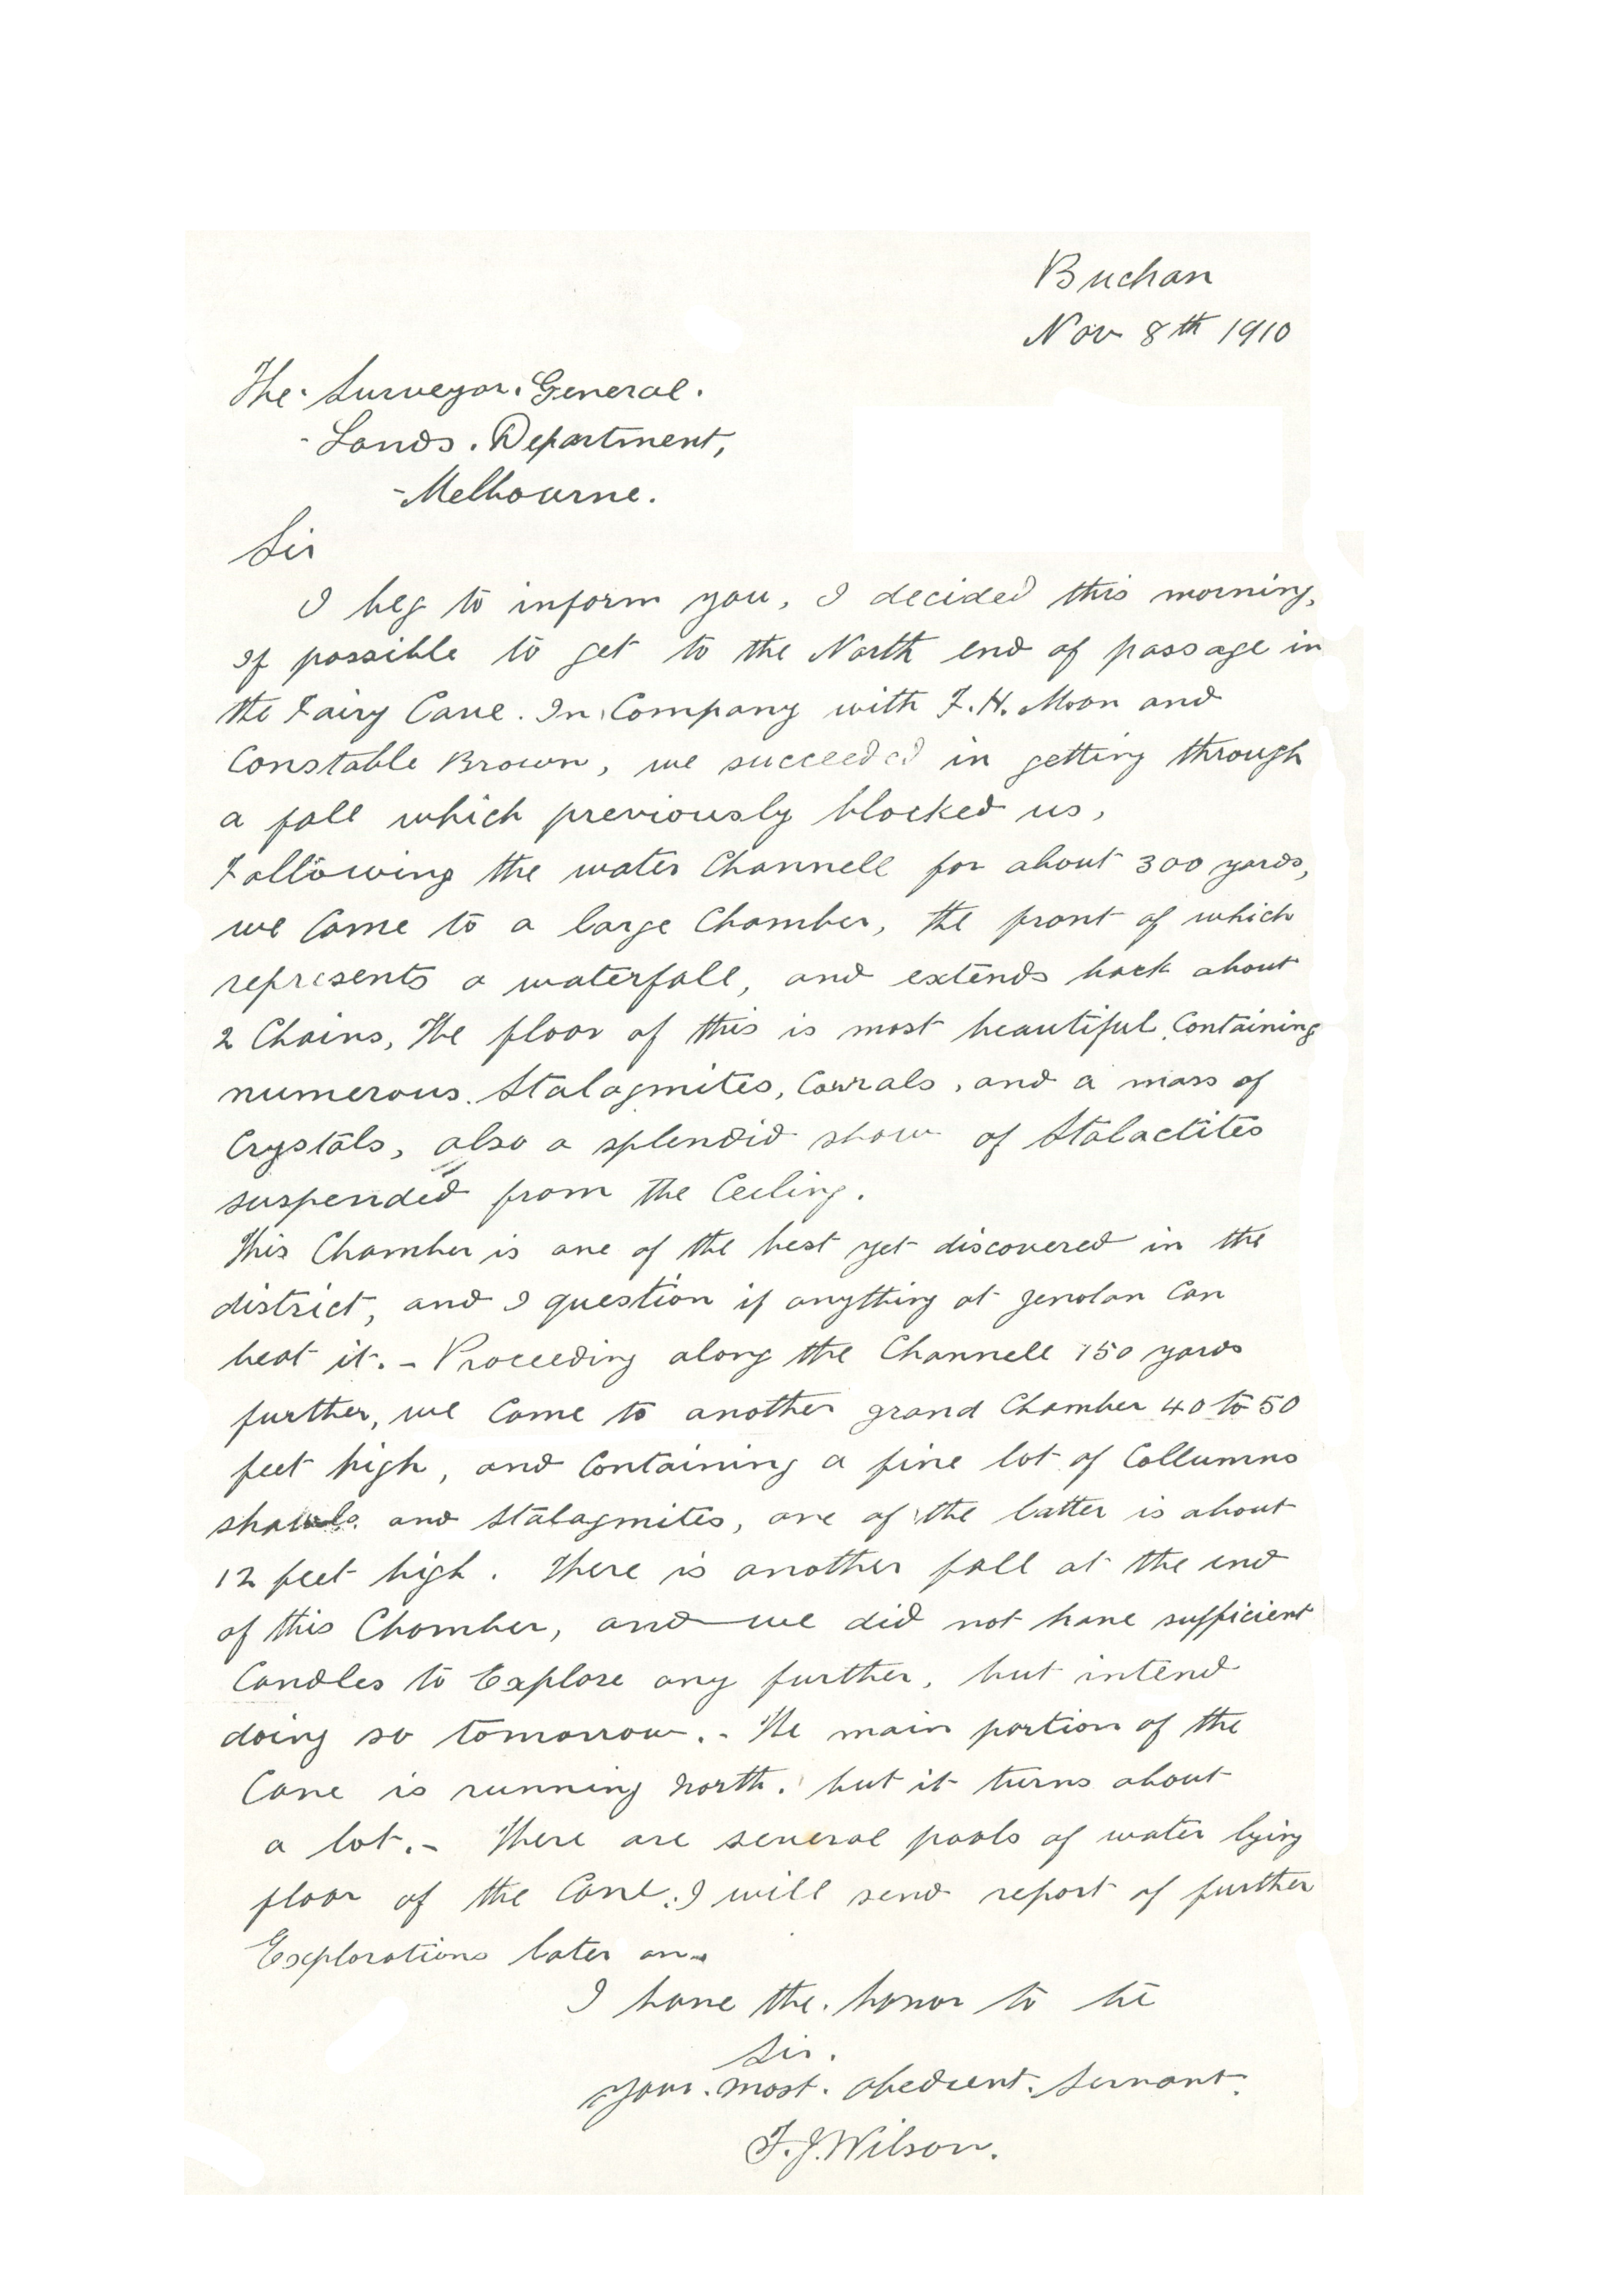 Buchan
Nov 8th 1910
The Surveyor. General.
- Lands. Department,
- Melbourne.
Sir
I beg to inform you, I decided this morning,
if possible to get to the North end of passage in
the Fairy Cave. In Company with F. H. Moon and
Constable Brown, we succeeded in getting through
a fall which previously blocked us,
Following the water Channell for about 300 yards,
we Came to a large Chamber, the front of which
represents a waterfall, and extends back about
2 Chains, The floor of this is most beautiful. Containing
numerous. Stalagmites, Corrals, and a mass of
Crystals, also a splendid show of Stalactites
suspended from the Ceiling.
This Chamber is one of the best yet discovered in the
district, and I question if anything at Jenolan Can
beat it. - Proceeding along the Channell 150 yards
further, we Came to another grand Chamber 40 to 50
feet high, and Containing a fine lot of Collumns
shawls. and Stalagmites, one of the latter is about
12 feet high. There is another fall at the end
of this Chamber, and we did not have sufficient
Candles to Explore any further, but intend
doing so tomorrow. - The main portion of the
Cave is running north. but it turns about
a lot. - There are several pools of water lying
floor of the Cave. I will send report of further
Explorations later on.
I have the. honor to be
Sir.
Your. most. obedient. Servant.
F. J. Wilson.